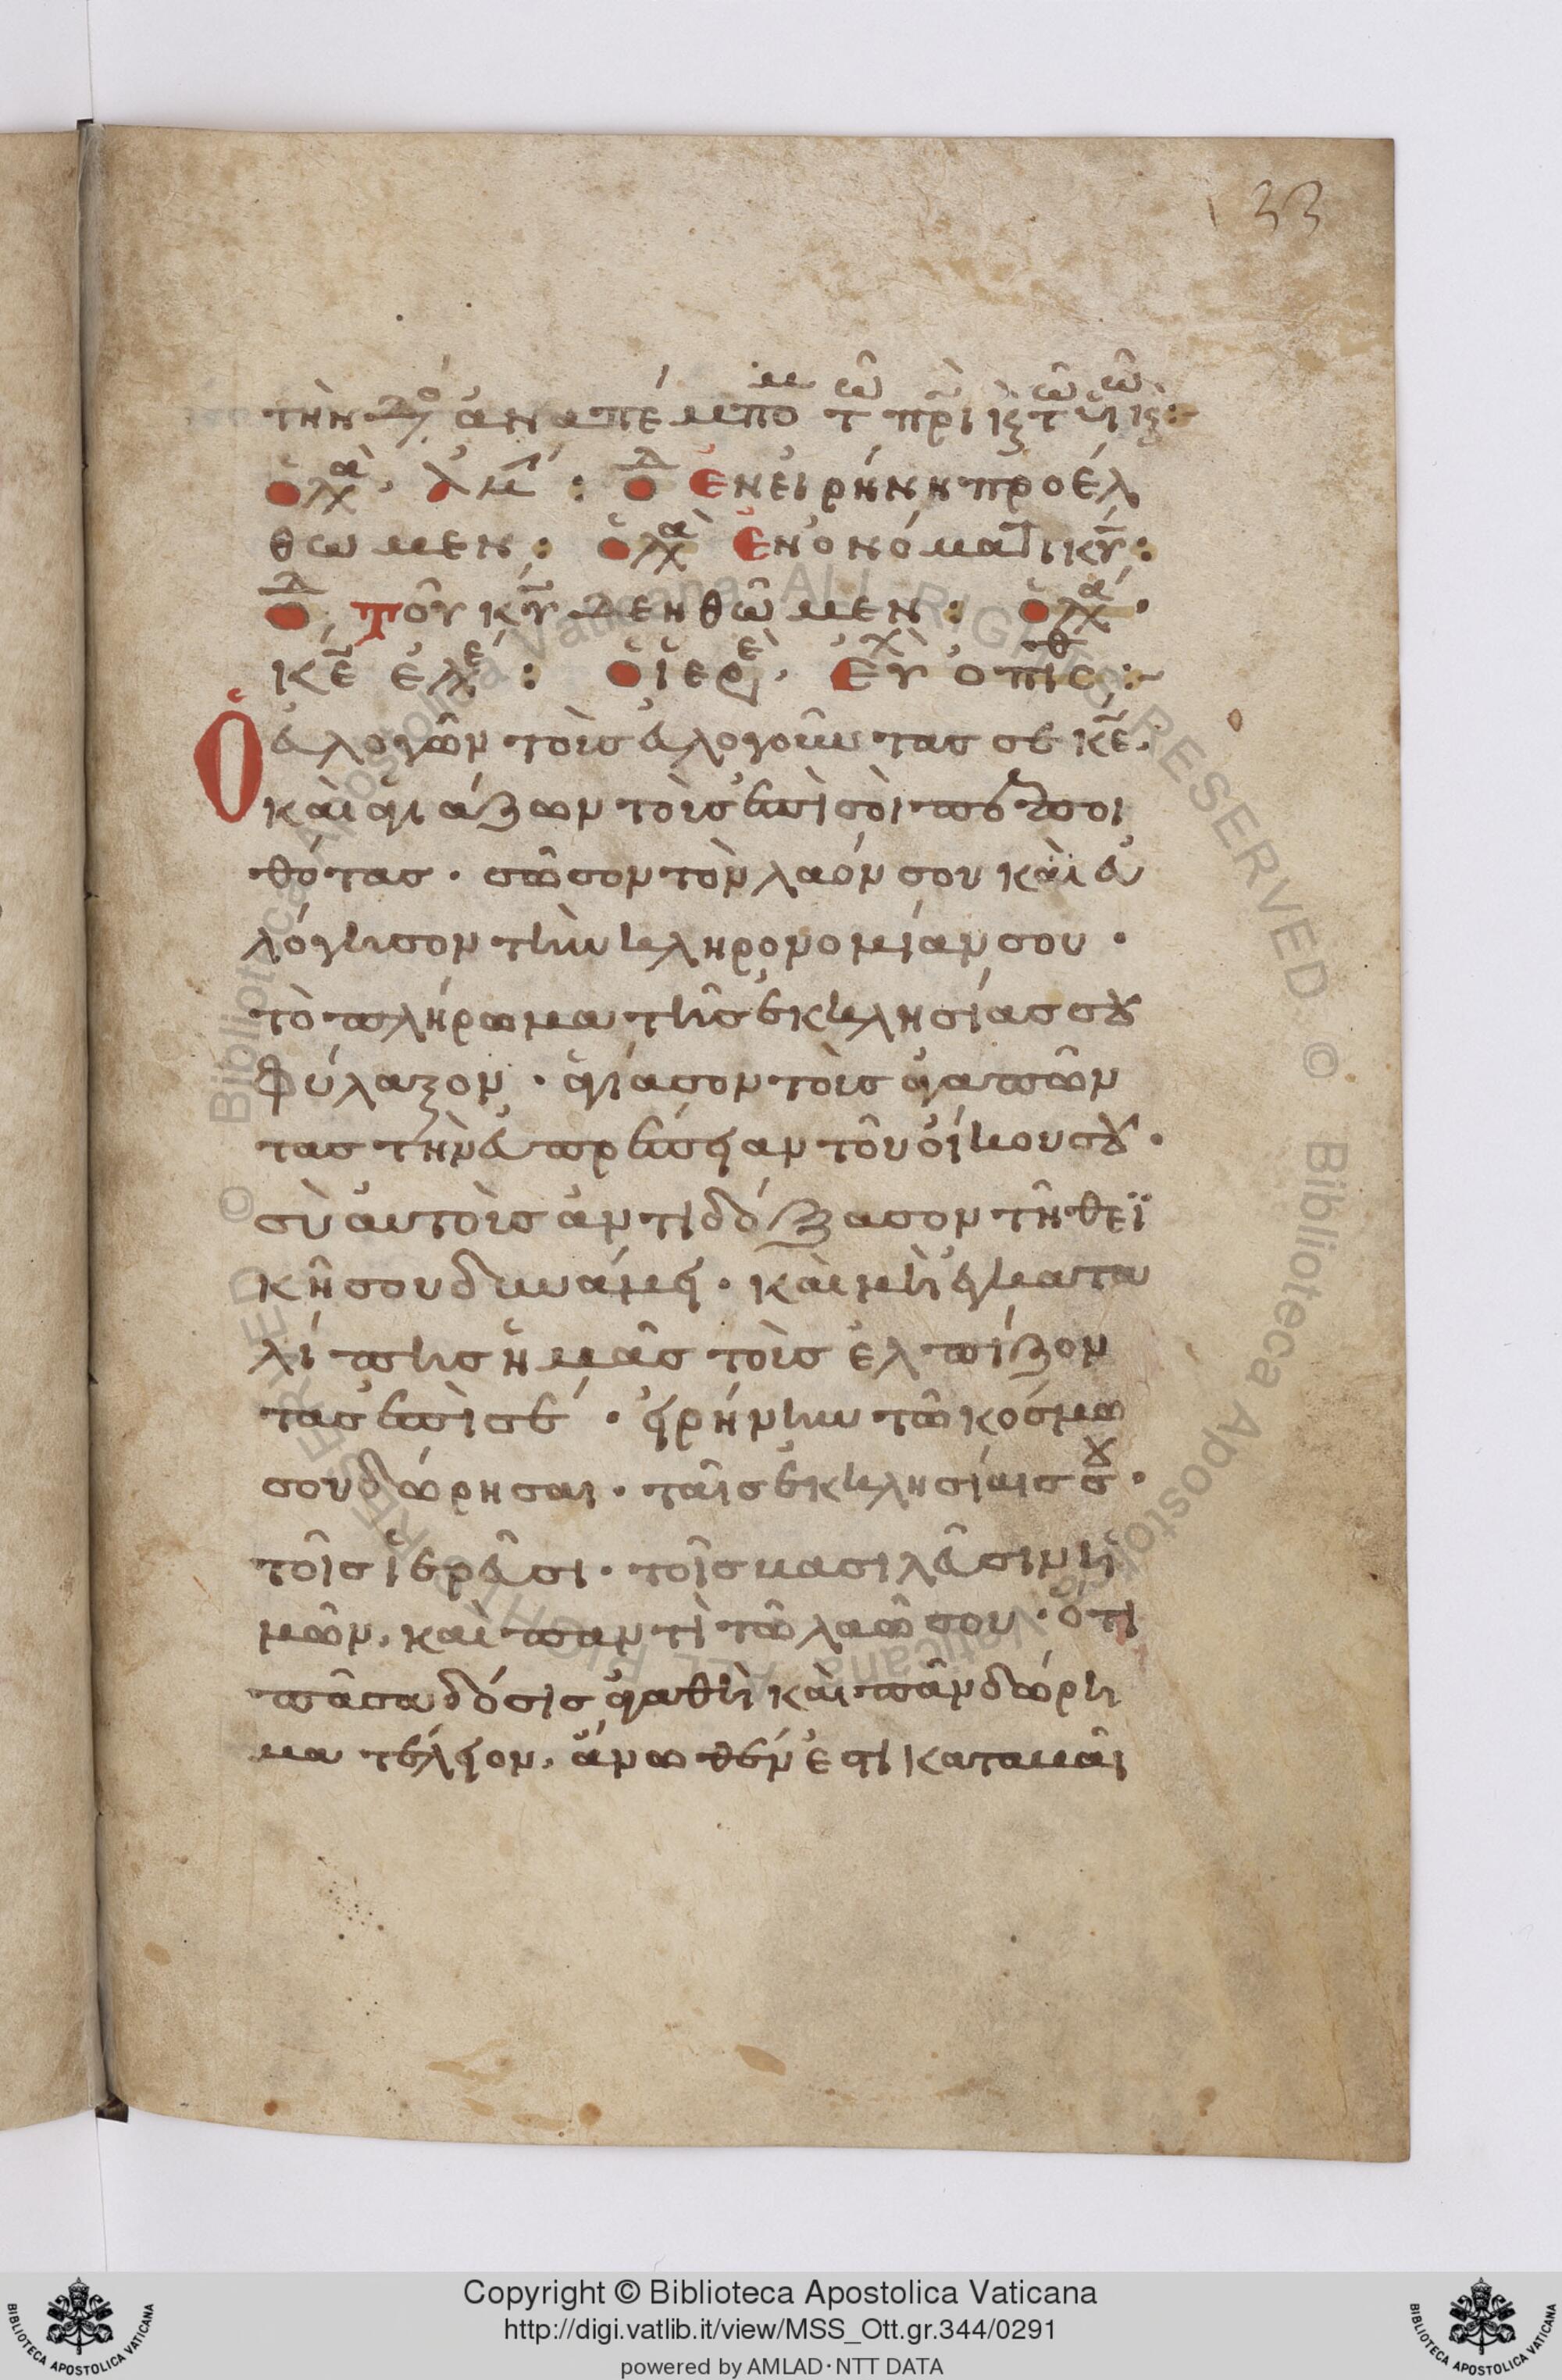 33
τὴν δό ἀναπέμπομ τῶ πρὶ κ τῶ υἱῶ κ:
ὁ λαὸ. ἀμ: ὁ Δ Ἐν εἰρήνη προέλ
θωμεν: ὁ λαὸ Ἐν ὀνόματι κυ:
ὁ Δ, Τοῦ κυ δεηθῶμεν: ὁ λαό.
κε ἐλέ: ὁ ἱερε, Εὐχὴ ὀπισθ:
Ὁ εὐλογῶν τοὺς εὐλογοῦντας σε κε.
καὶ ἁγιάζων τοὺς ἐπὶ σοὶ πεποι
θότας. σῶσον τὸν λαόν σου καὶ εὐ
λόγησον τὴν κληρονομίαν σου.
τὸ πλήρωμα τῆς ἐκκλησίας σου
φύλαξον. ἁγίασον τοὺς ἀγαπῶν
τας τὴν εὐπρέπειαν τοῦ οἴκου σου.
σὺ αυτοὺς ἀντιδόξασον τῆ θεϊ
κῆ σου δυνάμει. καὶ μὴ ἐγκατα
λίπης ἡμᾶς τοὺς ἐλπίζον
τας ἐπὶ σέ. εἰρήνην τῶ κόσμω
σου δώρησαι. ταῖς ἐκκλησίαις σου.
τοῖς ἱερεῦσι. τοῖς βασιλεῦσιν ἡ
μῶν, καὶ παντὶ τῶ λαῶ σου. ὅτι
πᾶσα δόσις ἀγαθὴ καὶ πᾶν δώρη
μα τέλειον, ἄνωθέν ἐστι καταβαῖ
Copyright © Biblioteca Apostolica Vaticana
http://digi.vatlib.it/view/MSS_Ott.gr.344/0291
powered by AMLAD·NTT DATA
BIBLIOTECA APOSTOLICA VATICANA
BIBLIOTECA APOSTOLICA VATICANA
© Biblioteca Apostolica Vaticana ALL RIGHTS RESERVED © Biblioteca Apostolica Vaticana ALL RIGHTS RESERVED